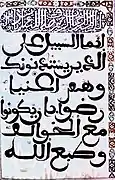 انما السبيل على
الذين يستذنونك
وهم اغنيا
رضوا بان يكونوا
مع الخوالف
وطبع الله